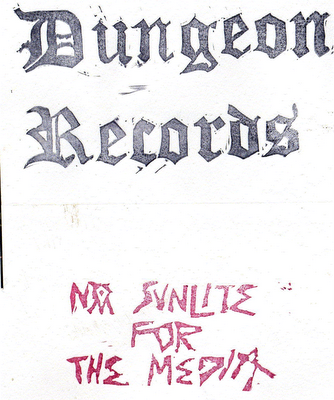 Dungeon
Records
NO SUNLITE
FOR
THE MEDIA